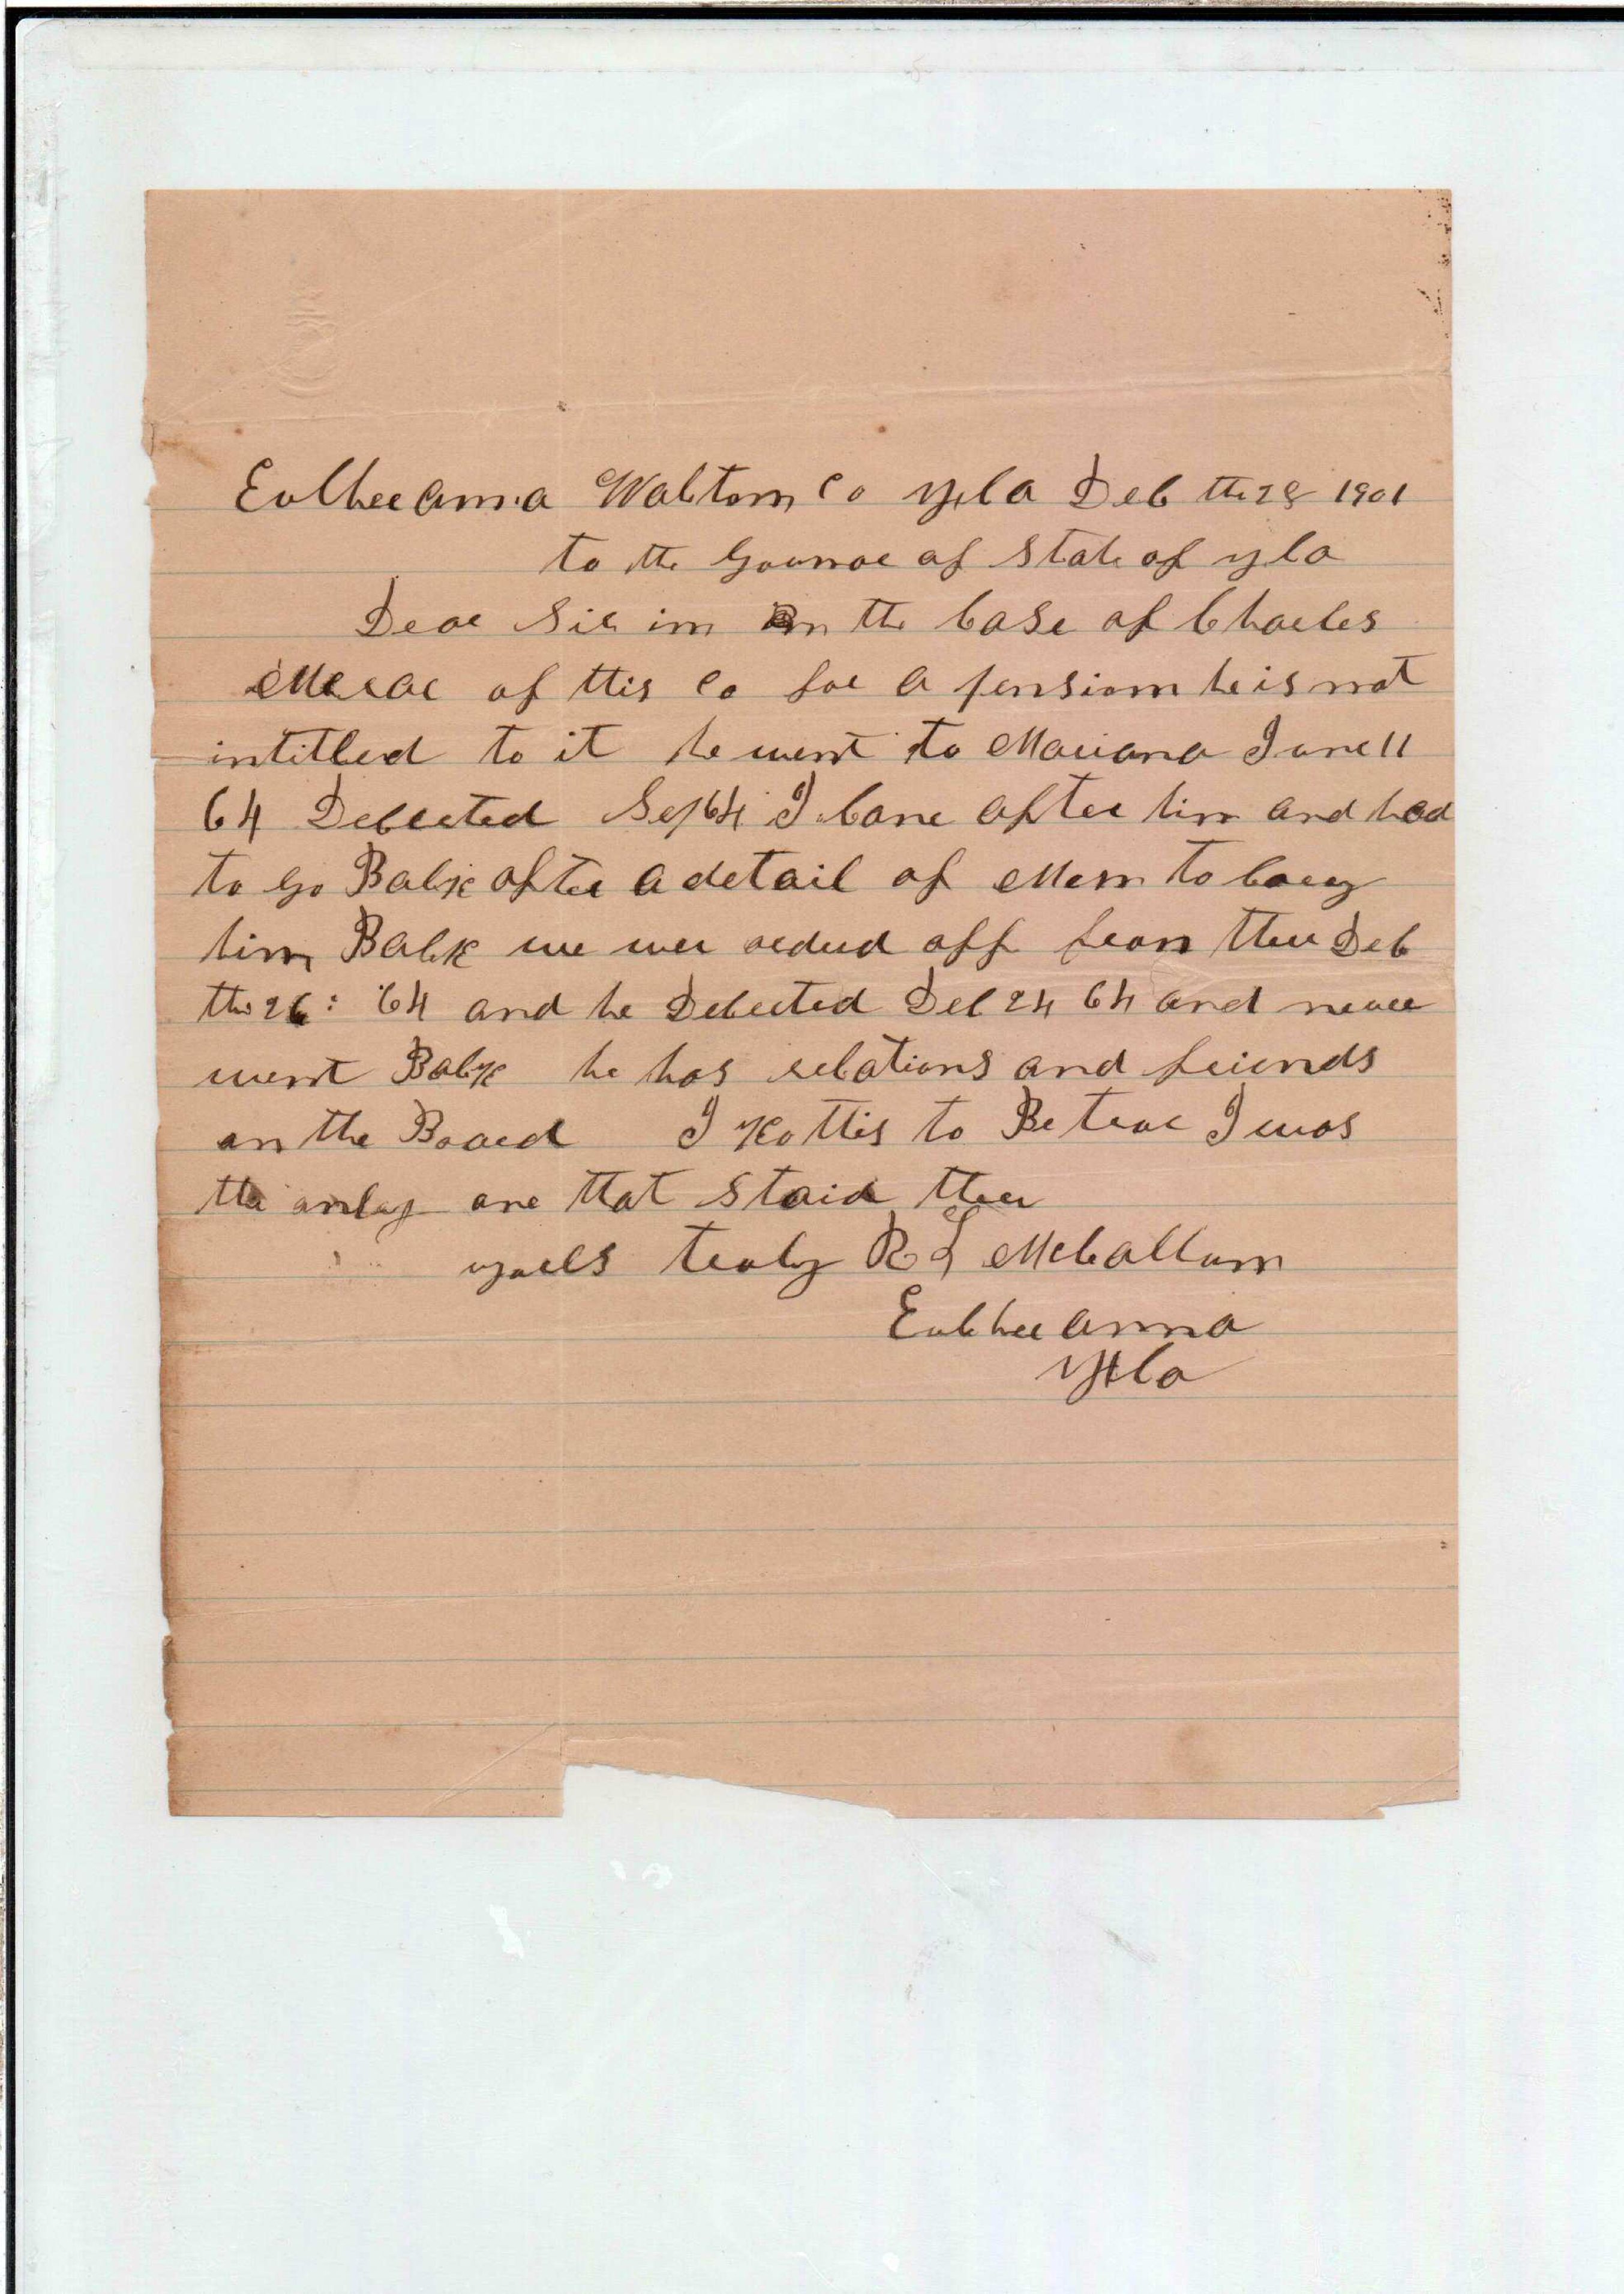 Eucheeanna Walton Co Fla Dec the 28 1901
to the Govnor of State of Fla
Dear Sir in the case of Charles
McRae of this Co for a pension he is not
intitled to it he went to Mariana June 11
64 Deserted Sept 64 I came after him and had
to go Back after a detail of Men to cary
him Back we wer orderd off from ther Dec
the 26: 64 and he Deserted Dec 24 64 and never
went Back he has relations and friends
on the Board I Ko this to Be true I was
the only one that staid ther
yours truly R L McCallum
Eucheeanna
Fla